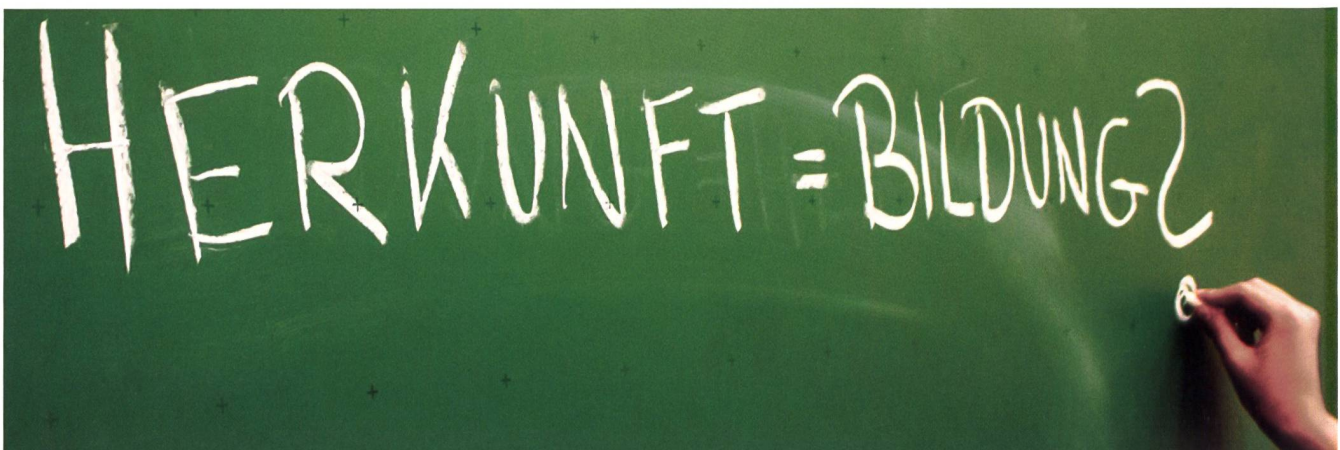 HERKUNFT = BILDUNG?